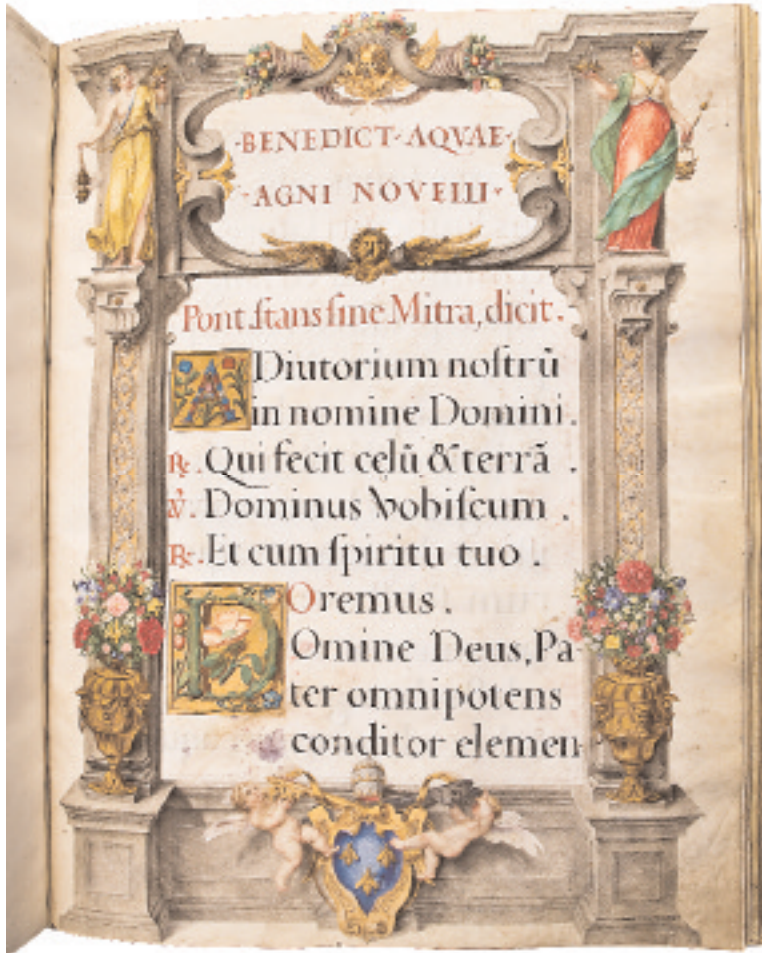 ·BENEDICT·AQVAE·
·AGNI NOVELLI·
Pont. ſtans ſine Mitra, dicit.
ADiutorium noſtrū
in nomine Domini.
℞. Qui fecit cęlū & terrā.
℣. Dominus vobiſcum.
℞. Et cum ſpiritu tuo.
Oremus.
DOmine Deus, Pa-
ter omnipotens
conditor elemen-